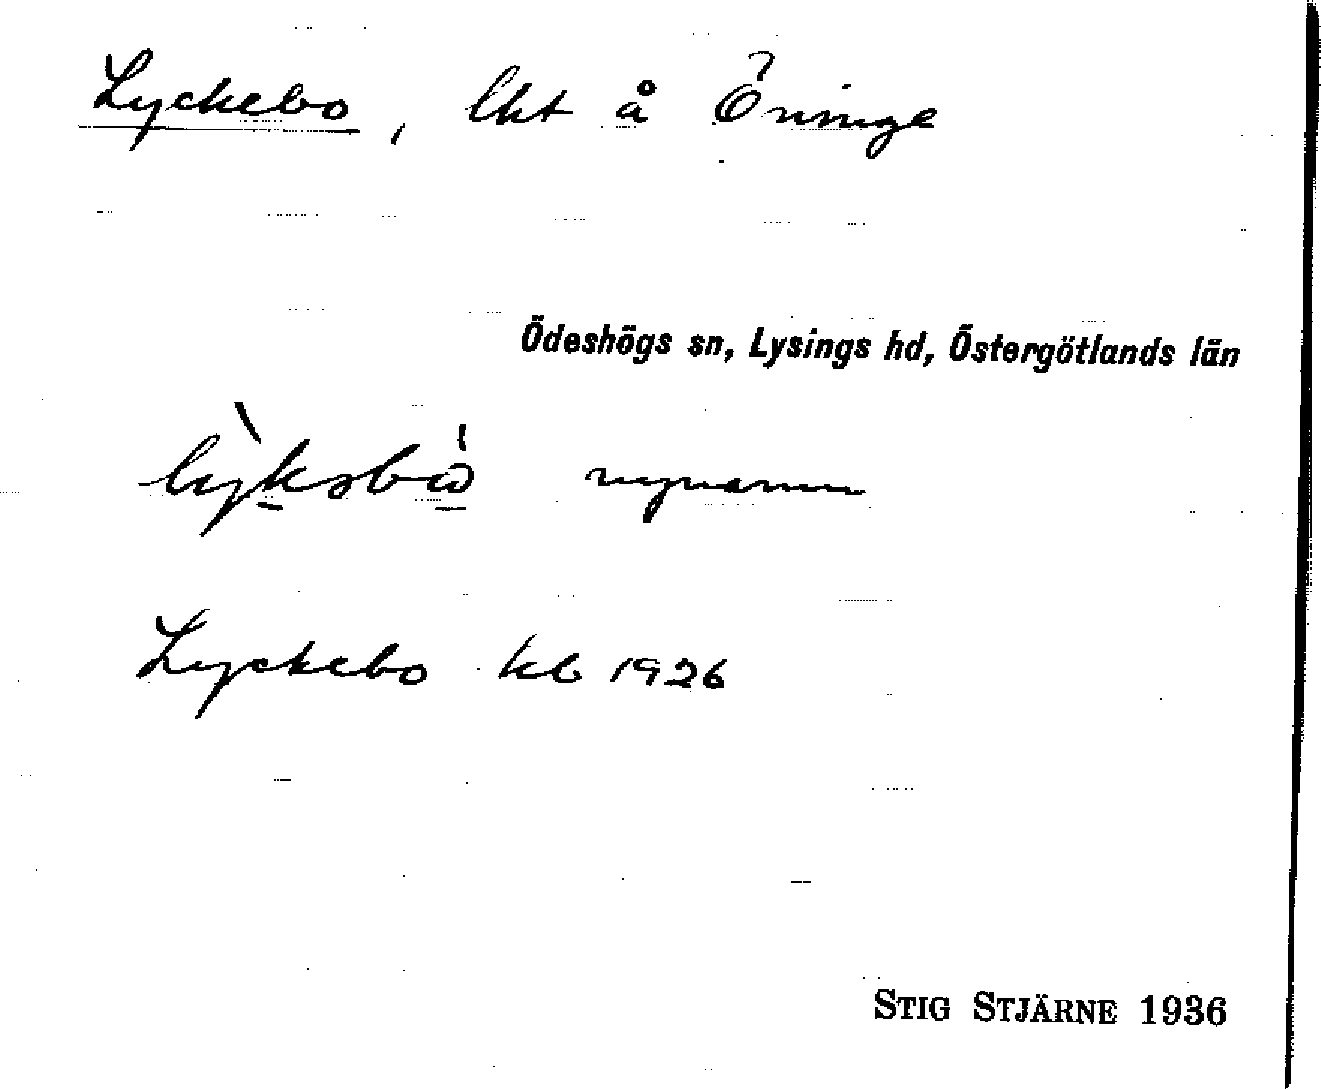 Lyckebo, lht å Öninge
Ödeshögs sn, Lysings hd, Östergötlands län
nynamn
Lyckebo kb 1926
STIG STJÄRNE 1936